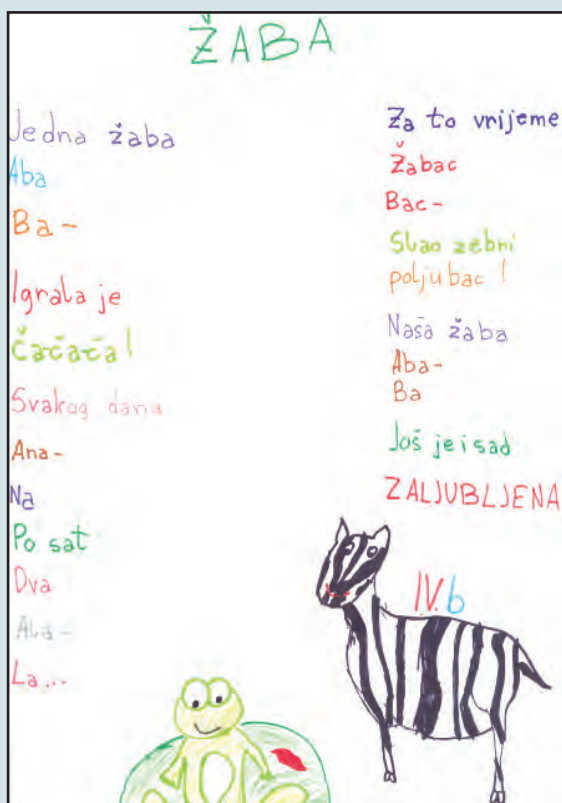 ŽABA
Jedna žaba
Aba
Ba-
Igrala je
čačača!
Svakog dana
Ana-
Na
Po sat
Dva
Ala-
La...
Za to vrijeme
Žabac
Bac-
Slao zebri
poljubac!
Naša žaba
Aba-
Ba
Još je i sad
ZALJUBLJENA
IV.b